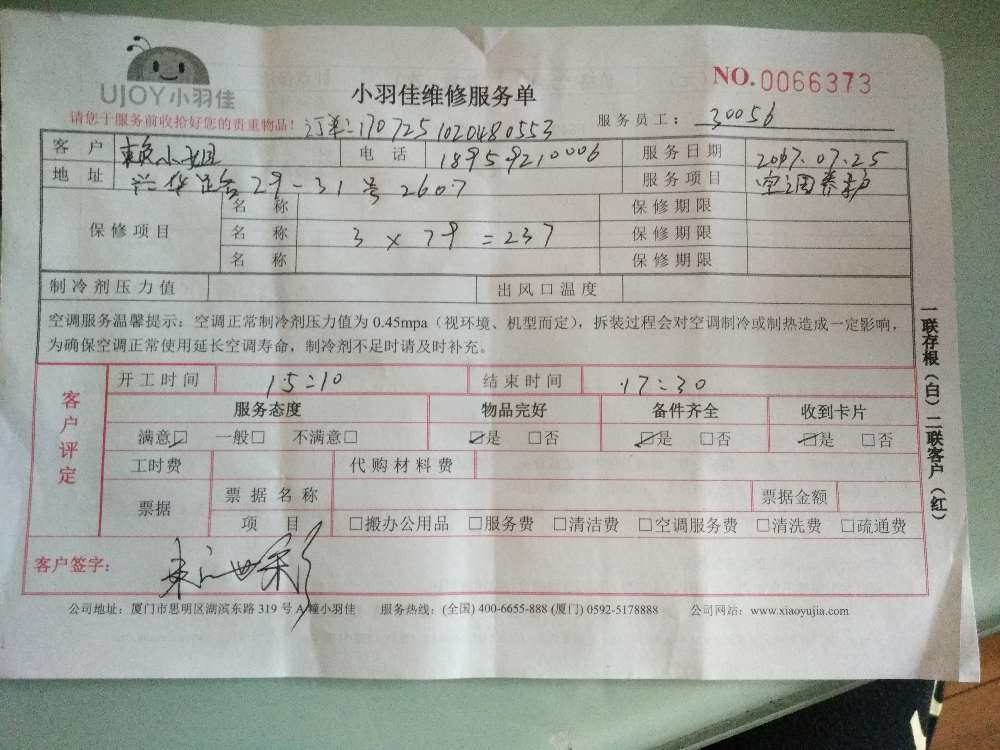 UJOY小羽佳
小羽佳维修服务单
NO.0066373
请您于服务前收拾好您的贵重物品!
订单:1707251020480553
服务员工: 30056
客户 赖小姐 电话 18959210006 服务日期 2017.07.25
地址 29-31号2607 服务项目 空调养护
保修项目
名称 保修期限
名称 3×79=237 保修期限
名称 保修期限
制冷剂压力值 出风口温度
空调服务温馨提示:空调正常制冷剂压力值为0.45mpa(视环境、机型而定),拆装过程会对空调制冷或制热造成一定影响,
为确保空调正常使用延长空调寿命,制冷剂不足时请及时补充。
客户评定
开工时间 15:10 结束时间 17:30
服务态度 物品完好 备件齐全 收到卡片
满意☑ 一般□ 不满意□ ☑是 □否 ☑是 □否 ☑是 □否
工时费 代购材料费
票据 票据名称 票据金额
项目 □搬办公用品 □服务费 □清洁费 □空调服务费 □清洗费 □疏通费
客户签字:
公司地址:厦门市思明区湖滨东路319号A幢小羽佳 服务热线:(全国)400-6655-888(厦门)0592-5178888 公司网站:www.xiaoyujia.com
一联存根(白)二联客户(红)